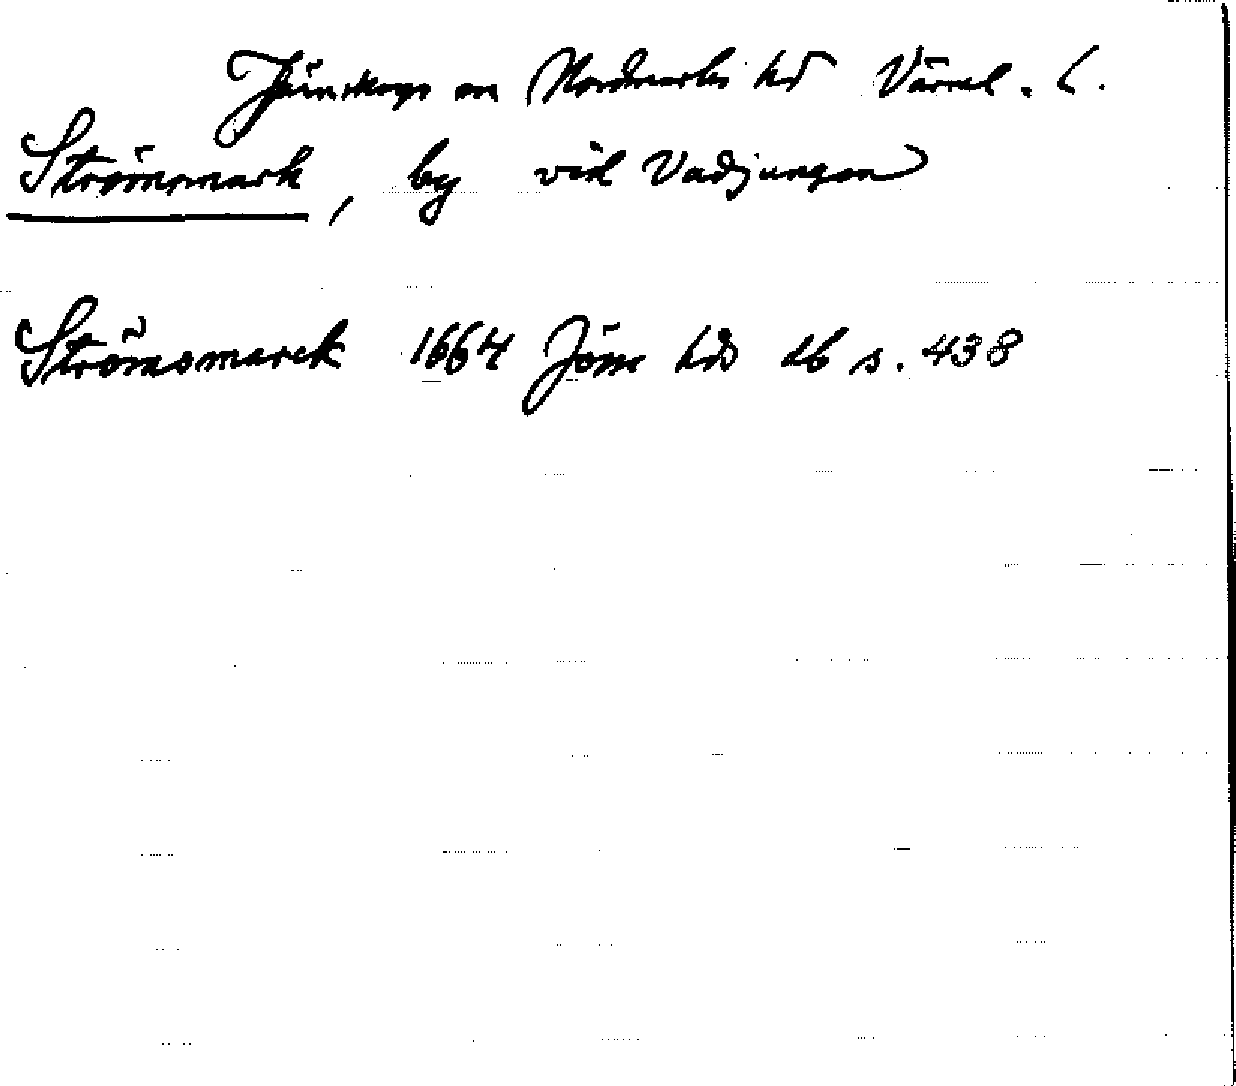 Järnskogs sn Nordmarks hd Värml. l.
Strömsmark, by vid Vadjungen
Strömsmarck 1664 Jöns hds db s. 438